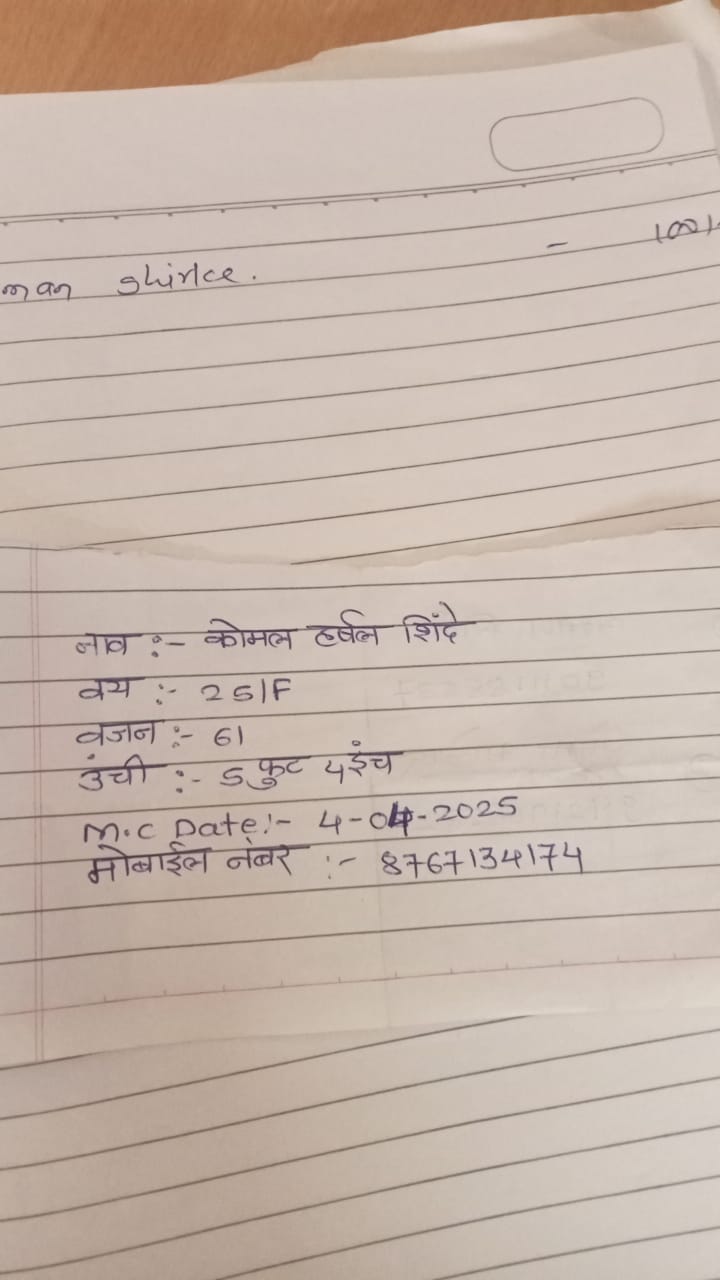 man Shirke. - 100/-
नाव :- कोमल हर्षल शिंदे
वय :- 25/F
वजन :- 61
उंची :- 5 फुट 4 इंच
M.C Date :- 4-04-2025
मोबाईल नंबर :- 8767134174